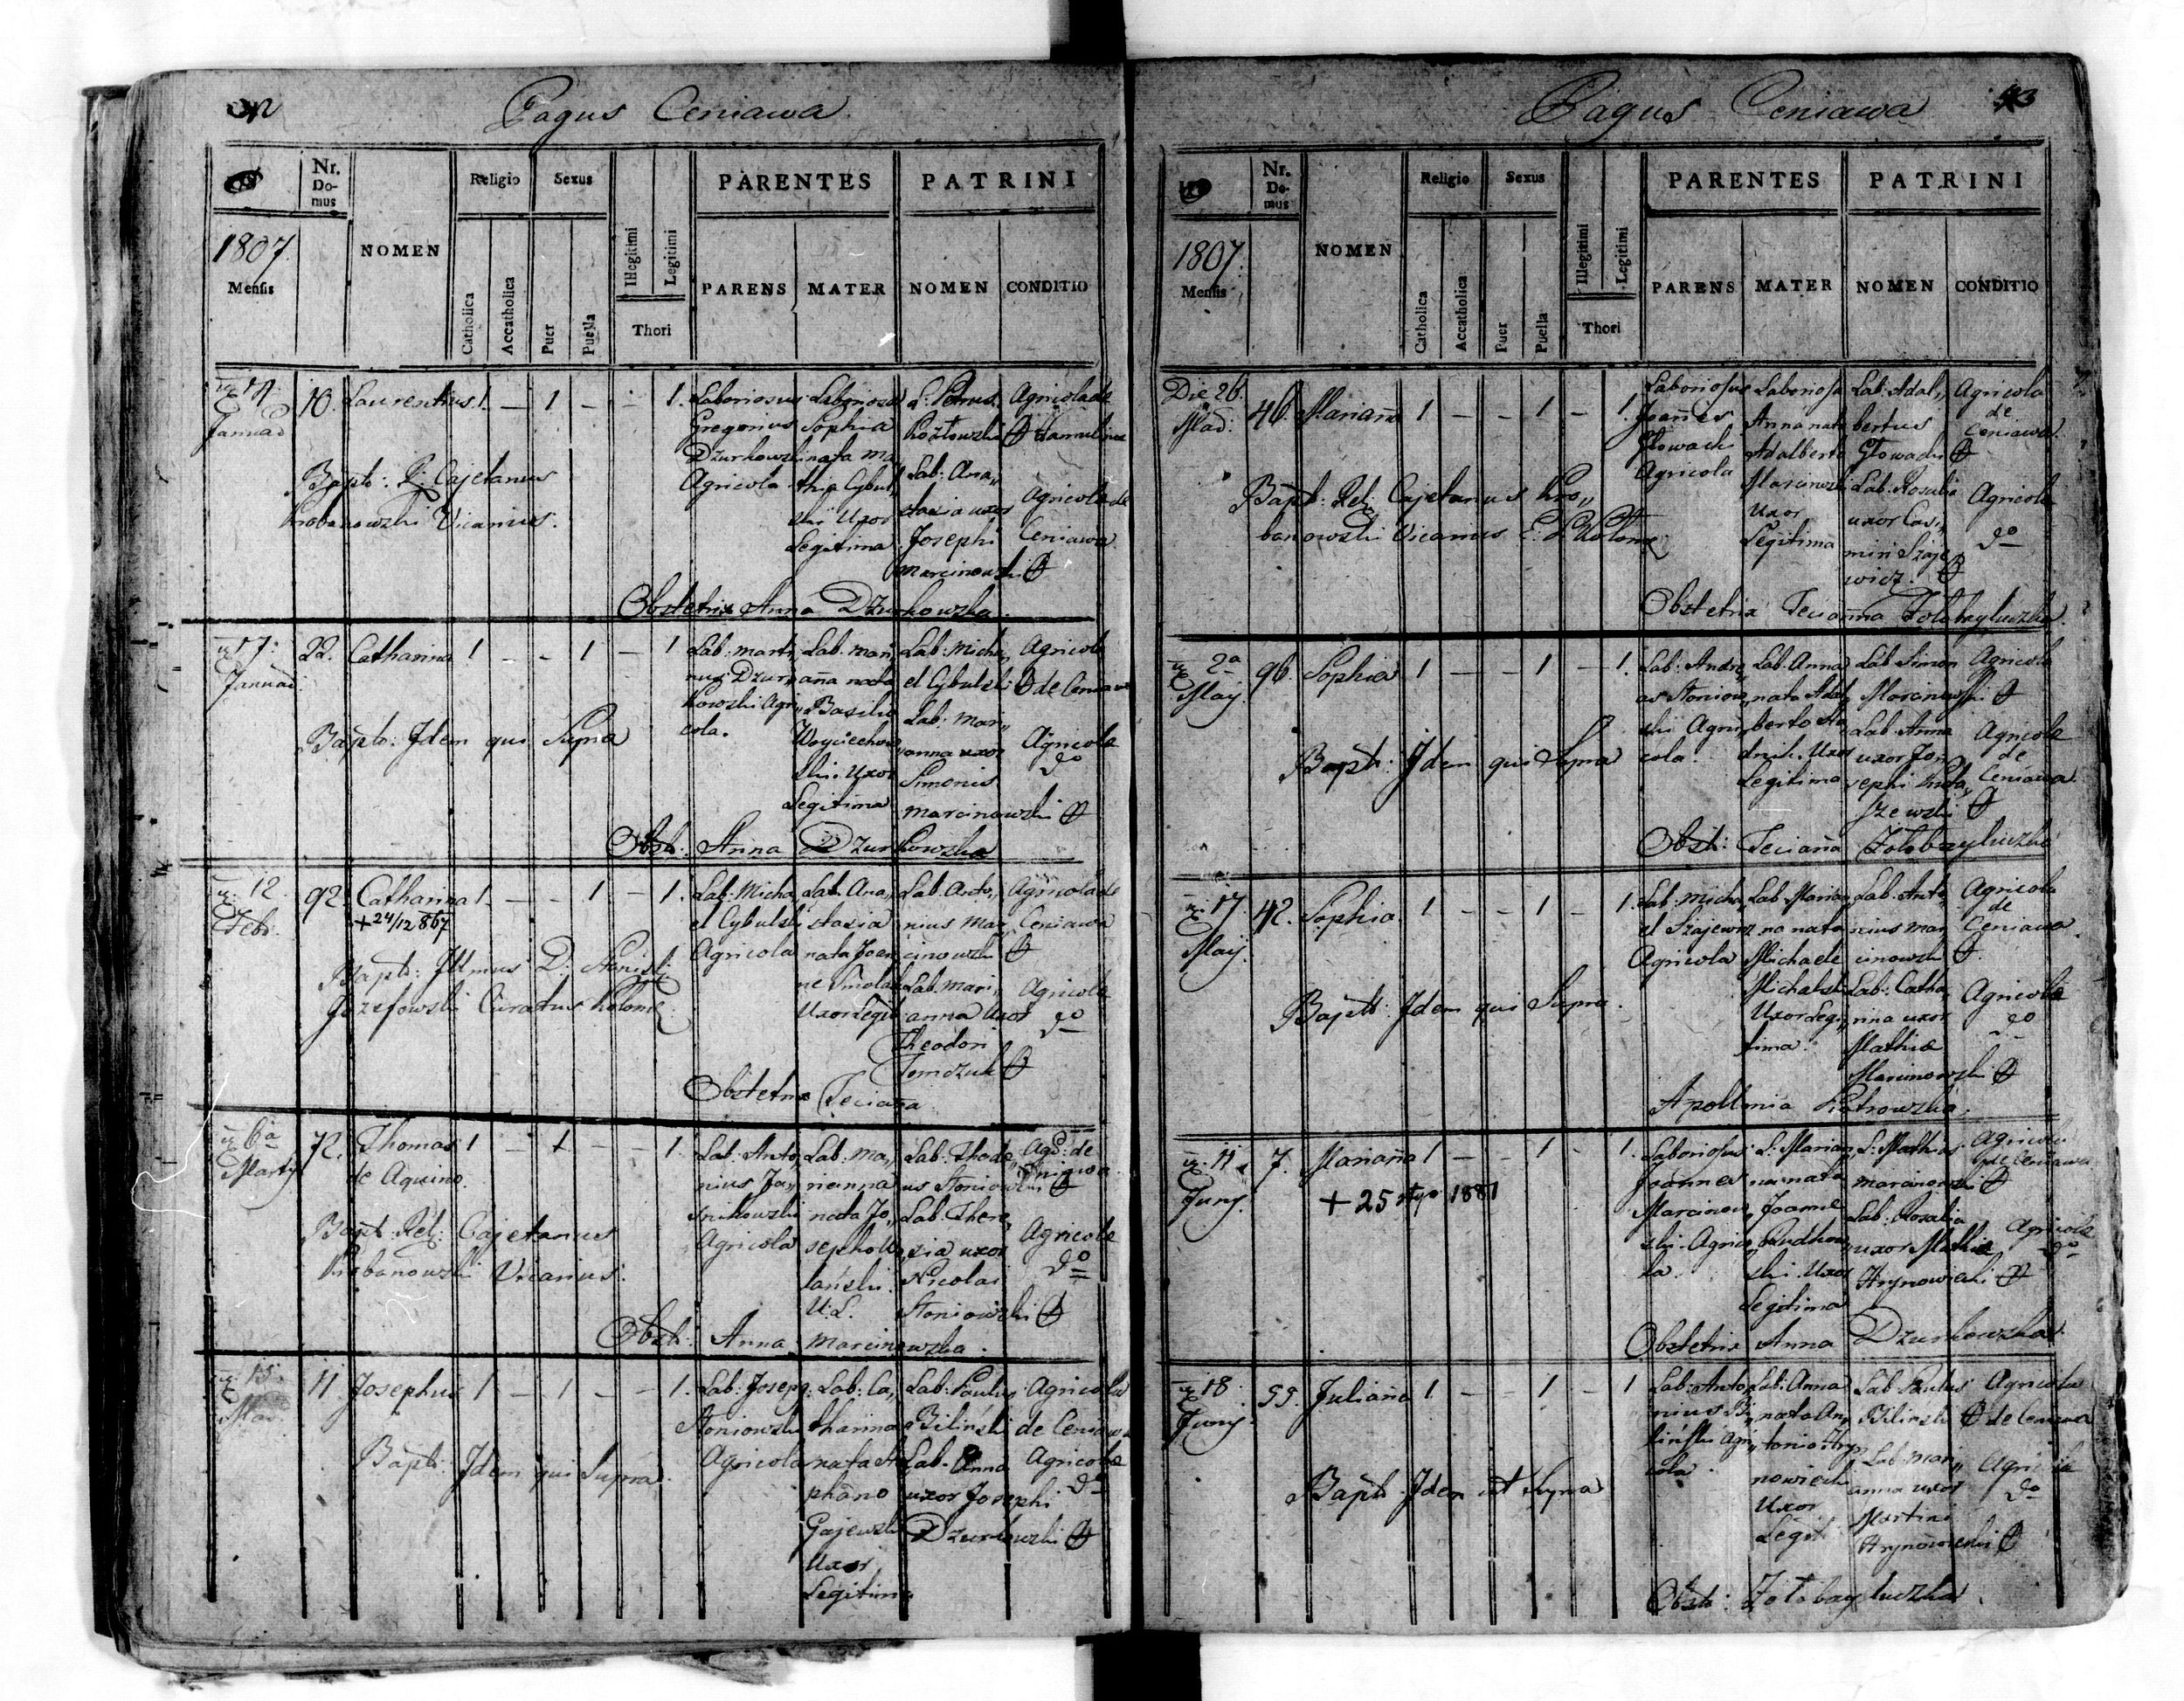 Pagus Ceniawa
Nr. Do- mus
NOMEN
Religio
Sexus
PARENTES
PATRINI
1807.
Mensis
Catholica
Accatholica
Puer
Puella
Illegitimi
Legitimi
Thori
PARENS
MATER
NOMEN
CONDITIO
Januar
10. Laurentius 1. — 1 — — 1.
Laboriosus
Gregorius
Dzurkowski
Agricola
Laboriosa
Sophia
nata Ma
thia Cybul„
ski Uxor
Legitima
L: Petrus
Kozłowski
Lab: Ana„
stasia uxor
Josephi
Marcinowski
Agricola de
Agricola de
Ceniawa
Bapt: R: Cajetanus
Vicarius.
Obstetrix Anna Dzurkowska.
17.
Januar
22. Catharina 1 — - 1 — 1
Lab: Marti„
nus Dzur„
kowski Agri„
cola.
Lab. Mari„
aña nata
Basilio
Woyciechow
ski. Uxor
Legitima
Lab: Micha„
el Cybulski
Lab: Mari„
anna uxor
Simonis
Marcinowski
Agricola
de Ceniawa
Agricola
do
Bapt: Idem qui Supra
Obst: Anna Dzurkowska
12.
Febr.
92. Catharina 1. — - 1 — 1.
+24/12 867
Lab: Micha„
el Cybulski
Agricola
Lab. Ana„
stasia
nata Joan„
ne Smolak
Uxor Legit
Lab. Anto„
nius Mar„
cinowski
Lab. Mari„
anna Uxor
Theodori
Tomczuk
Agricola de
Ceniawa
Agricola
do
Bapt: Illmus D. Stanisl:
Józefowski Curatus Kolome:
Obstetrix Teciaña
6a
Martij
72. Thomas 1 — 1 — - 1.
de Aquino.
Lab: Anto„
nius Ja„
Agricola
Lab: Ma„
rianna
nata Jo„
sepho
U: L.
Lab: Thade„
us Stoniowski
Lab. There„
sia uxor
Nicolai
Stoniowski
Agri: de
Ceniawa
Agricola
do
Bapt: Rel: Cajetanus
Vicarius.
Obst: Anna Marcinowska.
15.
Mar.
11. Josephus 1 — 1 — — 1.
Lab: Joseph
Stoniowski
Agricola
Lab: Ca„
tharina
nata Ste
phano
Gajewski
Uxor
Legitima
Lab: Paulus
Biliński
Lab. Anna
uxor Josephi
Dzurkowski
Agricola
de Ceniawa
Agricola
do
Bapt: Idem qui Supra.
Pagus Ceniawa
43
Nr. Do- mus
NOMEN
Religio
Sexus
PARENTES
PATRINI
1807.
Mensis
Catholica
Accatholica
Puer
Puella
Illegitimi
Legitimi
Thori
PARENS
MATER
NOMEN
CONDITIO
Die 26.
46. Mariaña 1 — — 1 — 1.
Laboriosus
Joañes
Głowacki
Agricola
Laboriosa
Anna nata
Adalberto
Marcinowski
Uxor
Legitima
Lab: Adal„
bertus
Głowacki
Lab: Rosalia
uxor Casi„
miri Szaje
wicz.
Agricola
de
Ceniawa.
Agricola
do
Bapt: Rel: Cajetanus
Vicarius
Obstetrix Teciañna
2a
Maij
96. Sophia 1 — — 1 — 1.
Lab: Andre„
as Stoniow„
ski Agri„
cola.
Lab. Anna
nata Adal„
berto
Uxor
Legitima
Lab Simon
Marcinowski
Lab. Anna
uxor Jo„
sephi
Agricola
Agricola
de
Ceniawa
Bapt: Idem qui Supra
Obst: Teciaña
17
Maij.
42. Sophia. 1 — — 1 — 1.
Lab: Micha„
el Szajewicz
Agricola
Lab Maria„
na nata
Michaele
Michalski
Uxor Legi„
tima.
Lab: Anto„
nius Mar
cinowski
Lab: Catha„
rina uxor
Mathiæ
Marcinowski
Agricola
de
Ceniawa.
Agricola
do
Bapt: Idem qui Supra.
Apollonia Piotrowska.
11.
Junij.
7. Mariaña 1 — — 1 - 1.
+ 25 1881
Laboriosus
Joannes
Marcinow„
ski. Agrico„
la.
L: Marian„
na nata
Joanne
Uxor
Legitima
L: Mathias
Marcinowski
Lab: Rosalia
uxor Mathiæ
Hrynowiecki
Agricola
de Ceniawa
Agricola
do
Obstetrix Anna Dzurkowska.
18
Junij.
55. Juliaña 1 — — 1 — 1
Lab: Anto„
nius Bi„
liński Agri„
cola.
Lab: Anna
nata An„
tonio Hry„
nowiecki
Uxor
Legit
Lab Paulus
Biliński
Lab Mari„
anna uxor
Martini
Hrynowiecki
Agricola
de Ceniawa
Agricola
do
Bapt: Idem ut Supra
Obst: